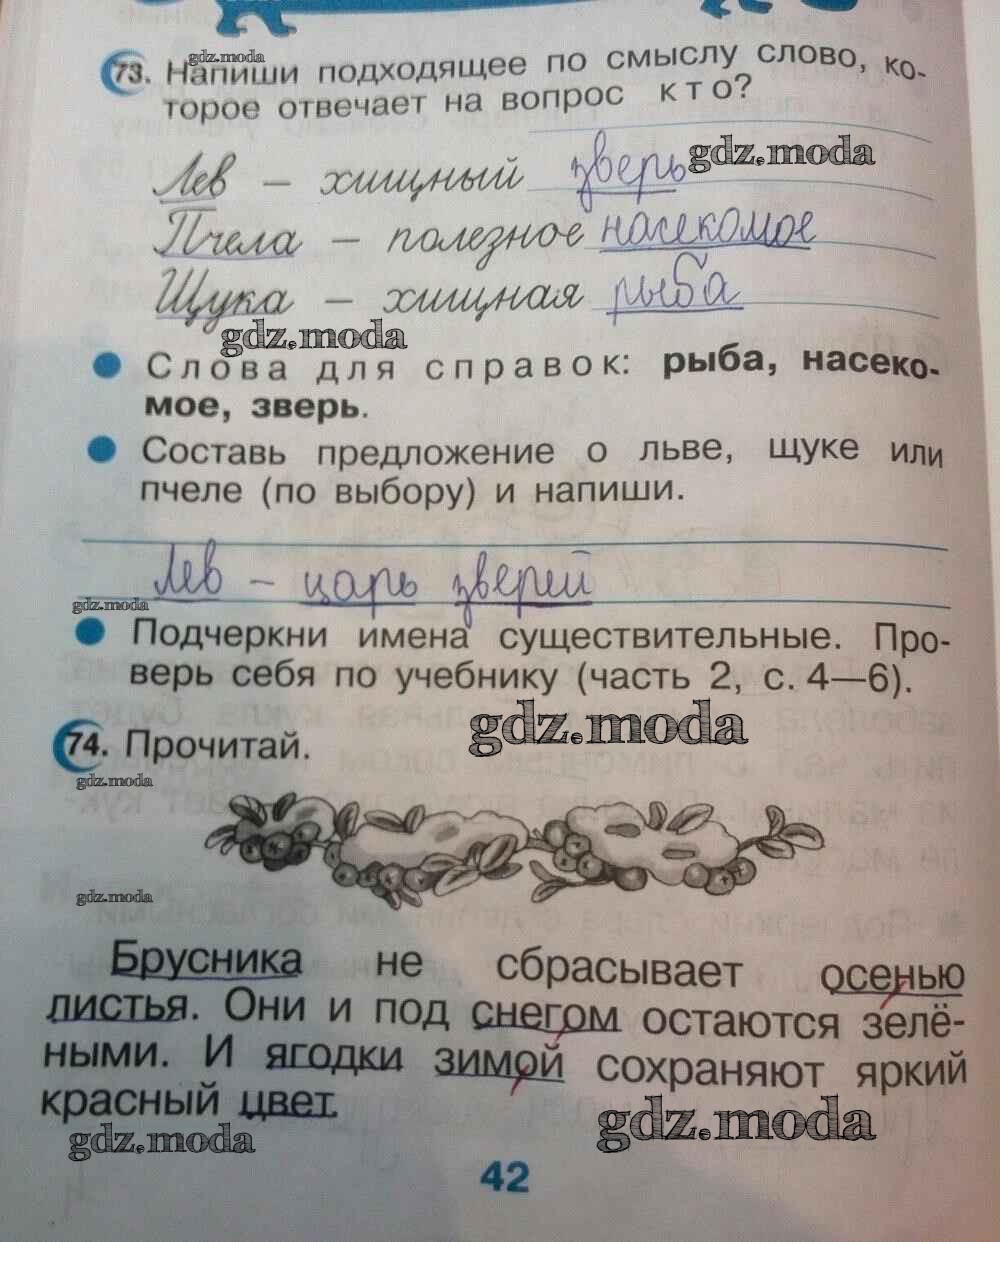 gdz.moda
73. Напиши подходящее по смыслу слово, ко-
торое отвечает на вопрос кто?
Лев – хищный зверь gdz.moda
Пчела – полезное насекомое
Щука – хищная рыба
gdz.moda
Слова для справок: рыба, насеко-
мое, зверь.
Составь предложение о льве, щуке или
пчеле (по выбору) и напиши.
Лев – царь зверей
gdz.moda
Подчеркни имена существительные. Про-
верь себя по учебнику (часть 2, с. 4—6).
gdz.moda
74. Прочитай.
gdz.moda
gdz.moda
Брусника не сбрасывает осенью
листья. Они и под снегом остаются зелё-
ными. И ягодки зимой сохраняют яркий
красный цвет.
gdz.moda
gdz.moda
42